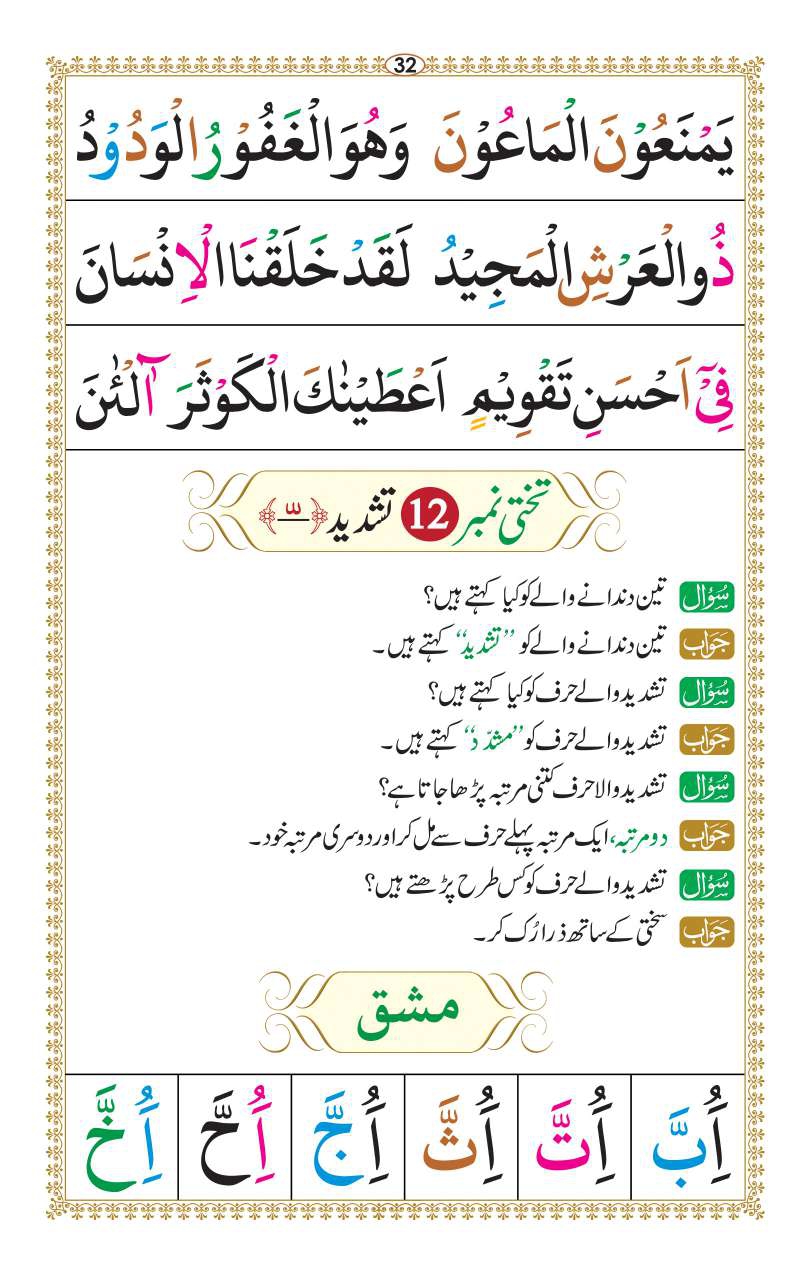 32
یَمْنَعُوْنَ الْمَاعُوْنَ وَهُوَ الْغَفُوْرُ الْوَدُوْدُ
ذُو الْعَرْشِ الْمَجِیْدُ لَقَدْ خَلَقْنَا الْاِنْسَانَ
فِیْۤ اَحْسَنِ تَقْوِیْمٍ اَعْطَیْنٰكَ الْكَوْثَرَ آٰلْـٰٔنَ
تختی نمبر 12 تشدید ﴿ــّـ﴾
سُوال تین دندانے والے کو کیا کہتے ہیں؟
جَواب تین دندانے والے کو ’’تشدید‘‘ کہتے ہیں۔
سُوال تشدید والے حرف کو کیا کہتے ہیں؟
جَواب تشدید والے حرف کو ’’مشدّد‘‘ کہتے ہیں۔
سُوال تشدید والا حرف کتنی مرتبہ پڑھا جاتا ہے؟
جَواب دو مرتبہ، ایک مرتبہ پہلے حرف سے مل کر اور دوسری مرتبہ خود۔
سُوال تشدید والے حرف کو کس طرح پڑھتے ہیں؟
جَواب سختی کے ساتھ ذرا رُک کر۔
مشق
اَِبَّ اَِتَّ اَِثَّ اَِجَّ اَِحَّ اَِخَّ